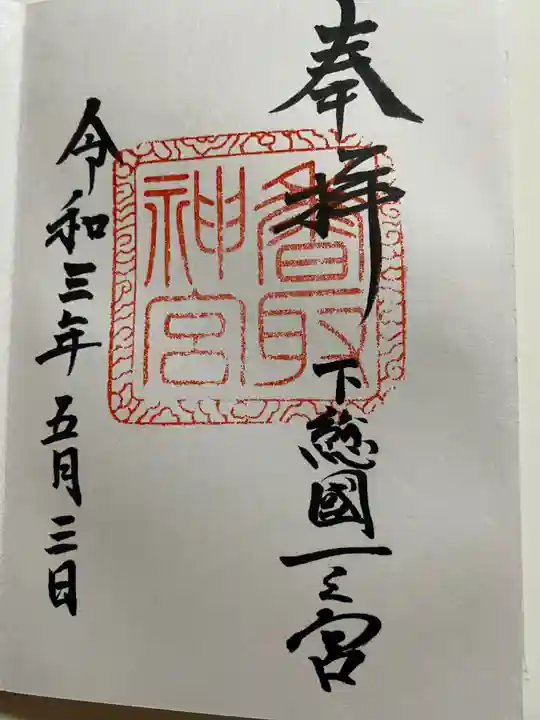 奉拝
下総國一之宮
香取
神宮
令和三年五月三日